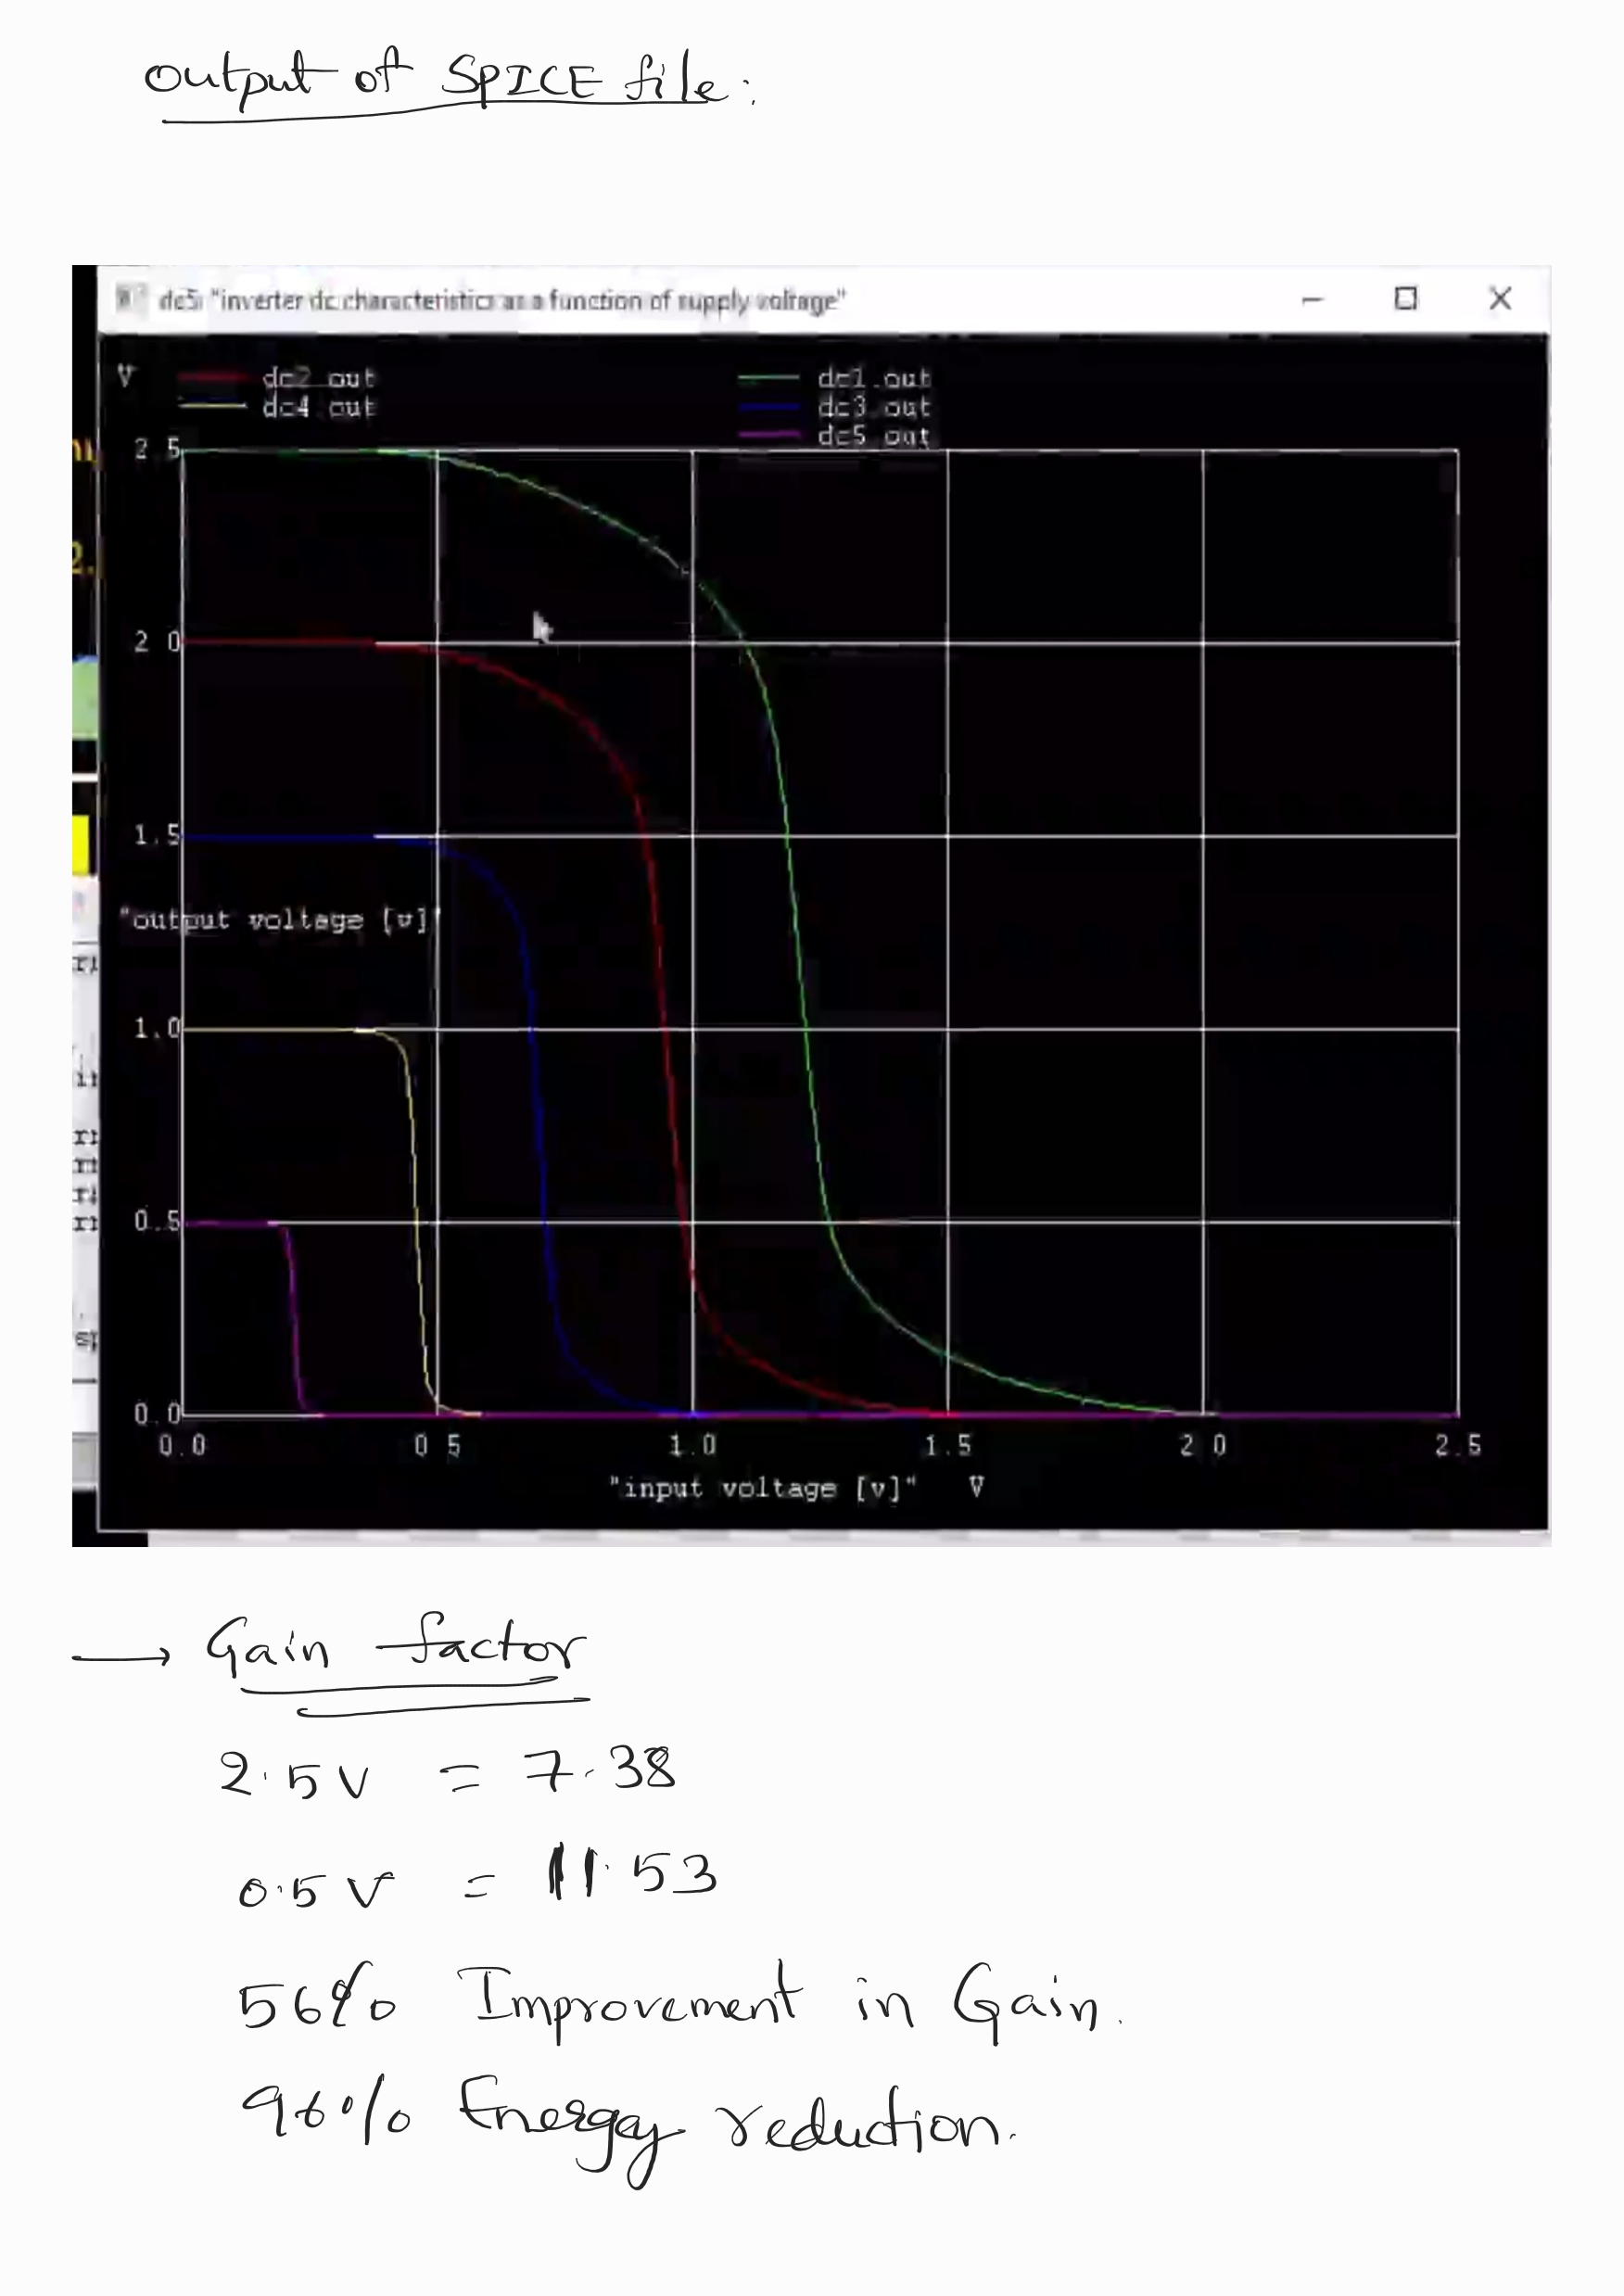 output of SPICE file:
dc5: "inverter dc characteristics as a function of supply voltage"
V dc2.out dc1.out
dc4.out dc3.out
dc5.out
2.5
2.0
1.5
"output voltage [v]"
1.0
0.5
0.0
0.0 0.5 1.0 1.5 2.0 2.5
"input voltage [v]" V
→ Gain factor
2.5V = 7.38
0.5V = 11.53
56% Improvement in Gain.
96% Energay reduction.